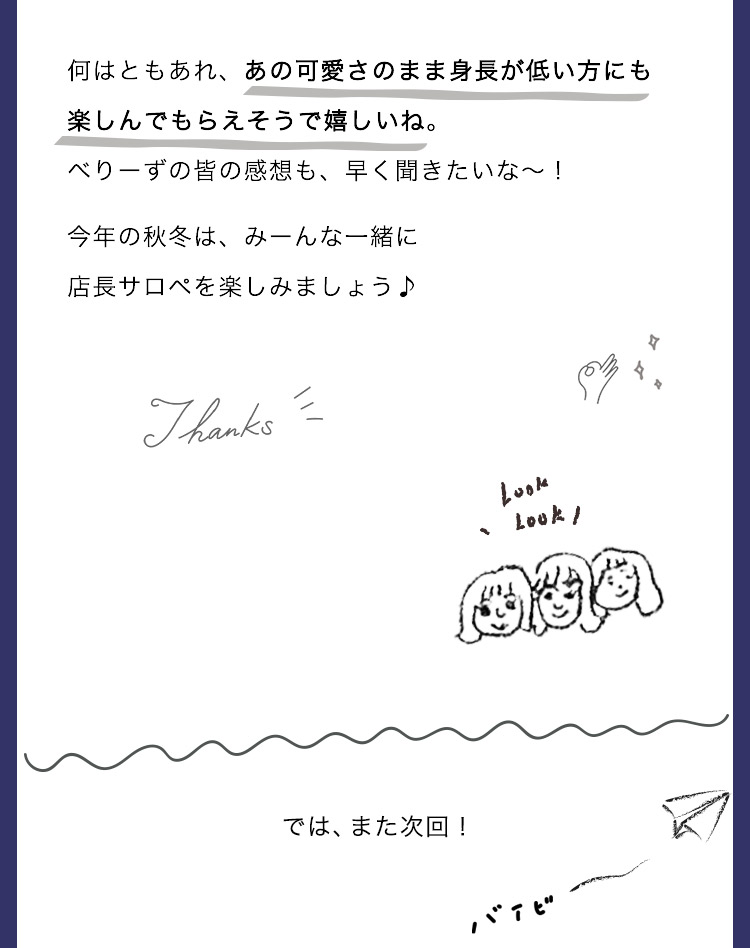 何はともあれ、あの可愛さのまま身長が低い方にも
楽しんでもらえそうで嬉しいね。
べりーずの皆の感想も、早く聞きたいな〜！
今年の秋冬は、みーんな一緒に
店長サロペを楽しみましょう♪
Thanks
Look
Look!
では、また次回！
バイビ